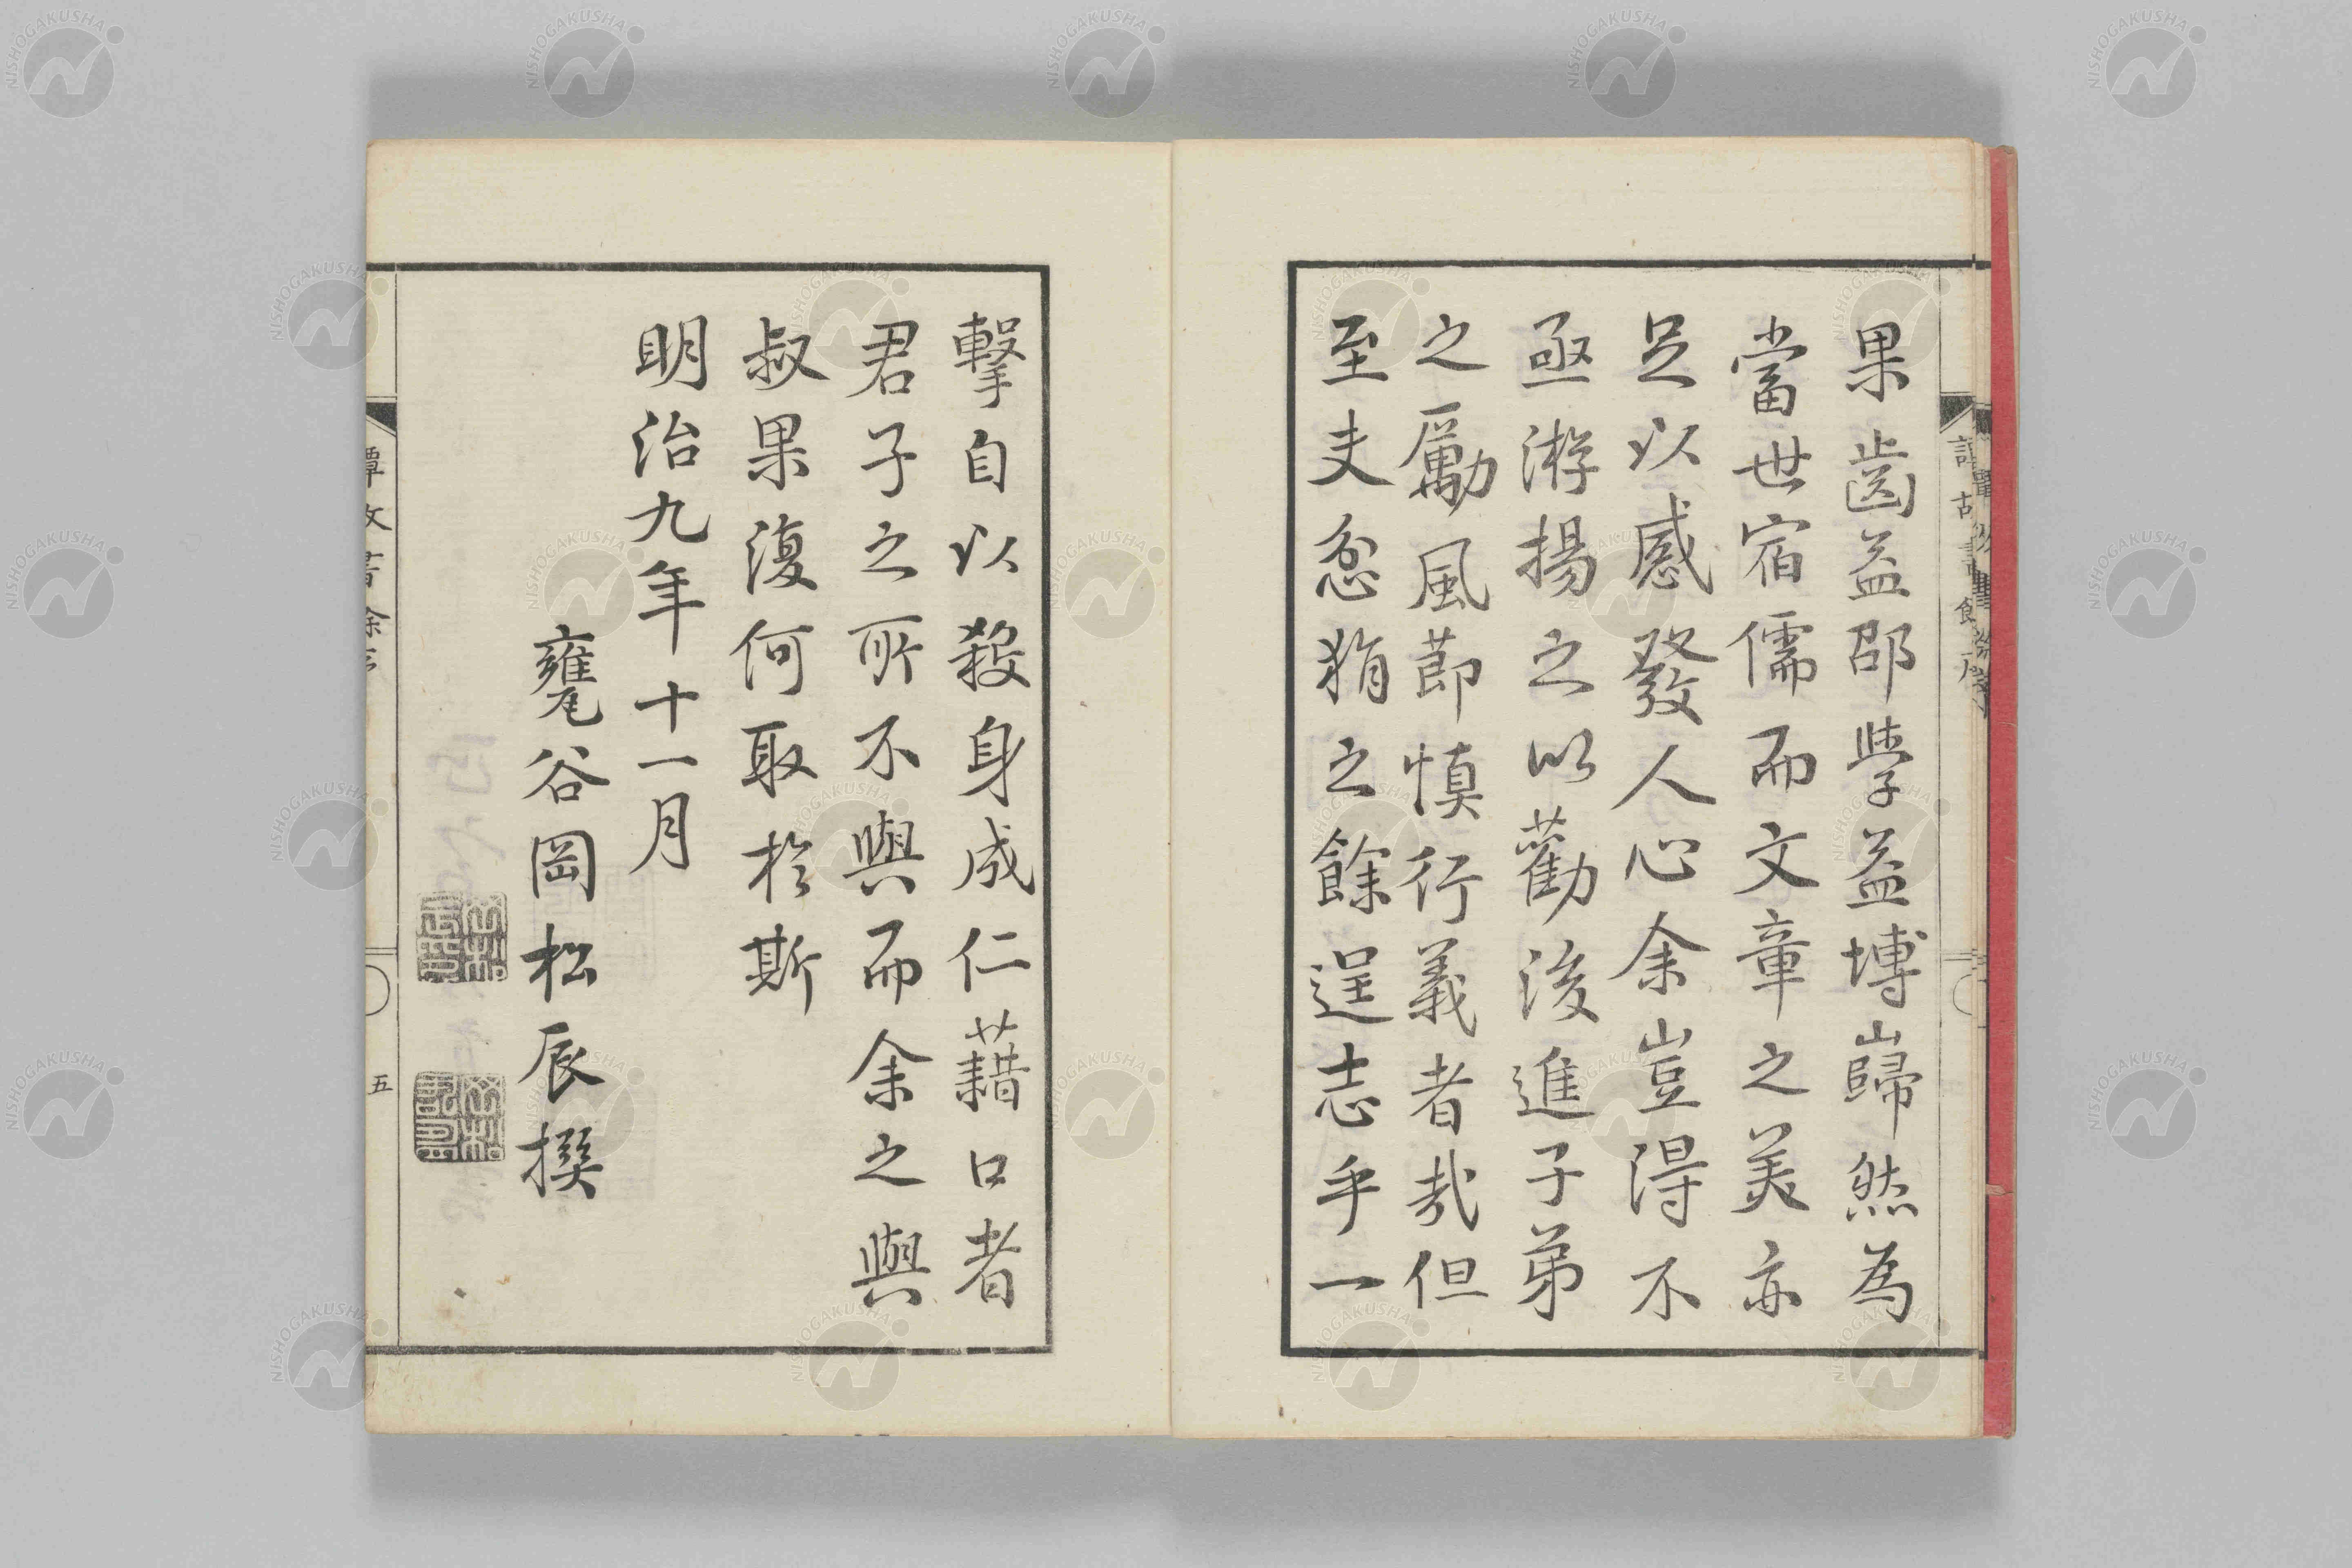 果齒益邵學益博巋然為
當世宿儒而文章之美亦
足以感發人心余豈得不
亟游揚之以勸後進子弟
之勵風節慎行義者哉但
至夫忿狷之餘逞志乎一
擊自以殺身成仁藉口者
君子之所不與而余之與
叔果復何取於斯
明治九年十一月
甕谷岡松辰撰
五
NISHOGAKUSHA